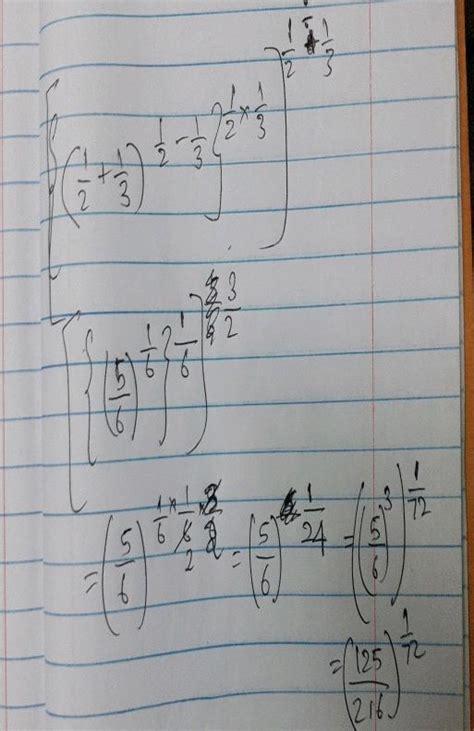 [{(1/2 + 1/3)^{1/2 - 1/3}}^{1/2 × 1/3}]^{1/2 ÷ 1/3}
[{(5/6)^{1/6}}^{1/6}]^{3/2}
= (5/6)^{1/6 × 1/6 × 3/2} = (5/6)^{1/24} = ((5/6)^3)^{1/72}
= (125/216)^{1/72}